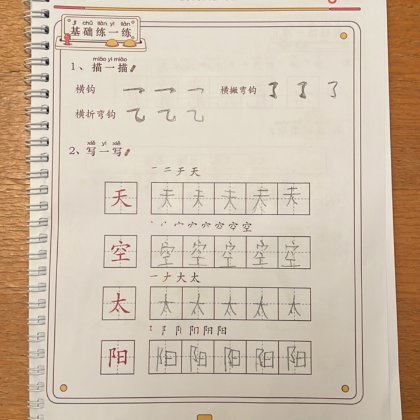 jī chǔ liàn yī liàn
基础练一练
miáo yì miáo
1、描一描
横钩 横撇弯钩
横折弯钩
xiě yì xiě
2、写一写
一 二 チ 天
天 天 天 天 天 天
空
空 空 空 空 空 空
一 ナ 大 太
太 太 太 太 太 太
阳 阳
阳 阳 阳 阳 阳 阳